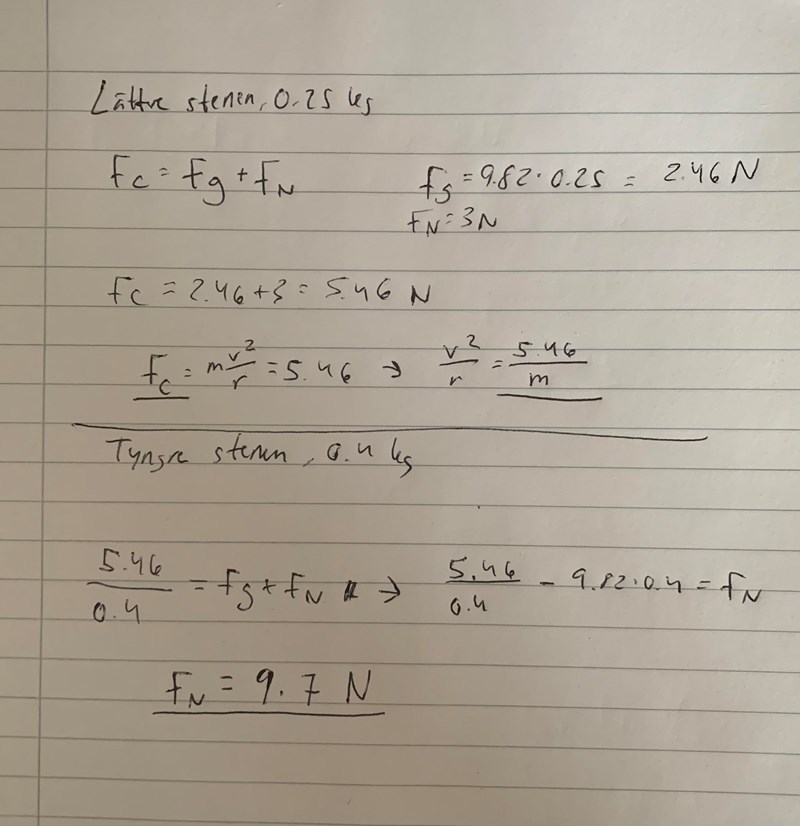 Lättre stenen, 0.25 kg
Fc = Fg + FN fg = 9.82 · 0.25 = 2.46 N
FN = 3N
Fc = 2.46 + 3 = 5.46 N
Fc = m v²/r = 5.46 → v²/r = 5.46/m
Tyngre stenen, 0.4 kg
5.46/0.4 = Fg + FN → 5.46/0.4 - 9.82 · 0.4 = FN
FN = 9.7 N